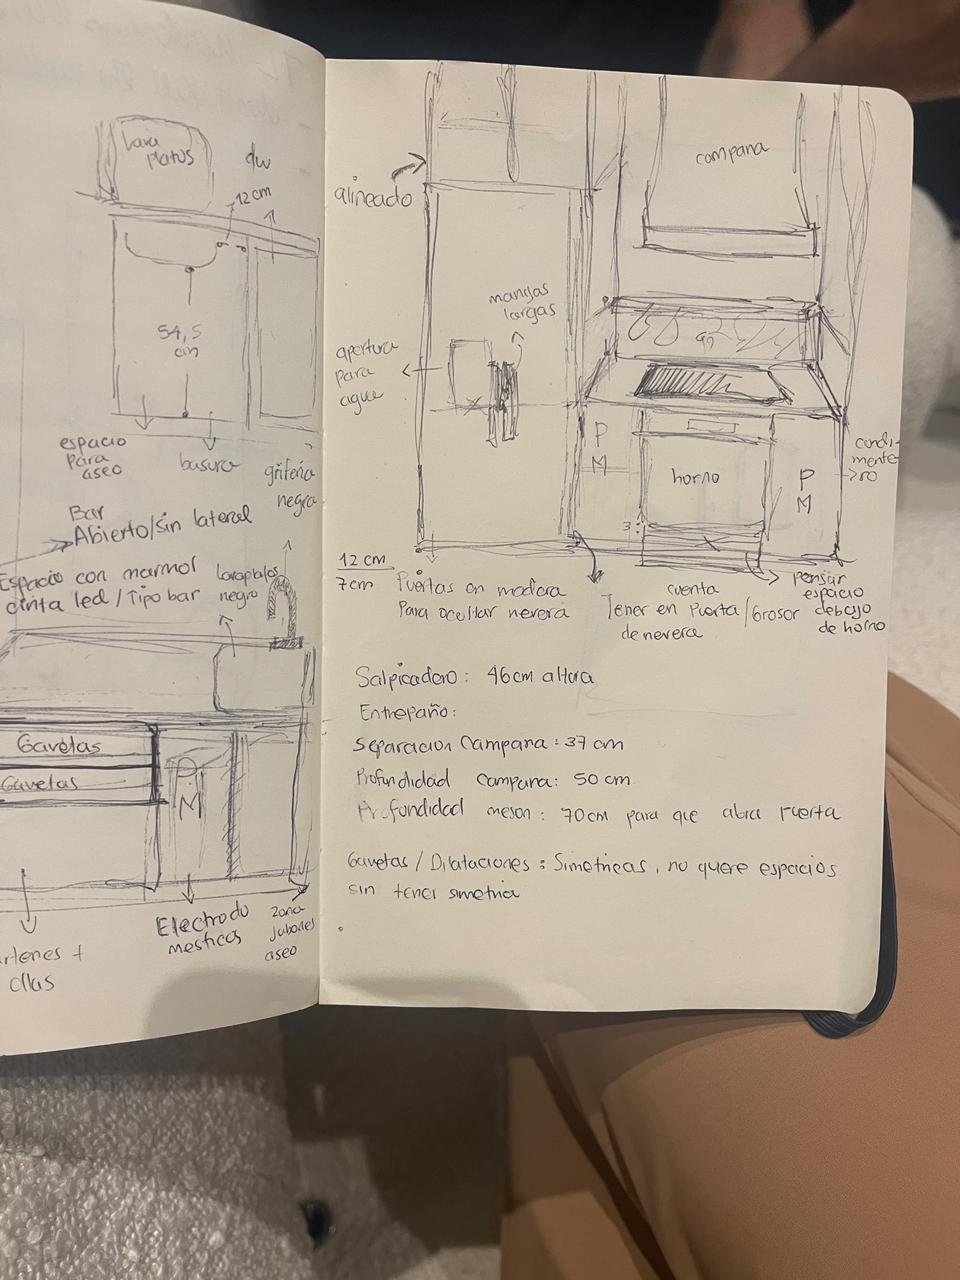 lava
platos
dw
12cm
54,5
cm
espacio
para
aseo
basura
grifería
negra
Bar
Abierto/sin lateral
Espacio con marmol
cinta led / Tipo bar
lavaplatos
negro
Gavetas
Gavetas
M
Electrodo
mesticos
zona
jabones
aseo
ollas
campana
alineado
manijas
largas
apertura
para
agua
P
M
horno
P
M
condi-
mente
ro
3
12 cm
7cm
Puertas en madera
Para ocultar nevera
cuenta
Tener en Puerta/Grosor
de nevera
pensar
espacio
debajo
de horno
Salpicadero: 46cm altura
Entrepaño:
Separacion Campana: 37 cm
Profundidad campana: 50 cm
Profundidad meson: 70cm para que abra puerta
Gavetas / Dilataciones: Simetricas, no quere espacios
sin tener simetria